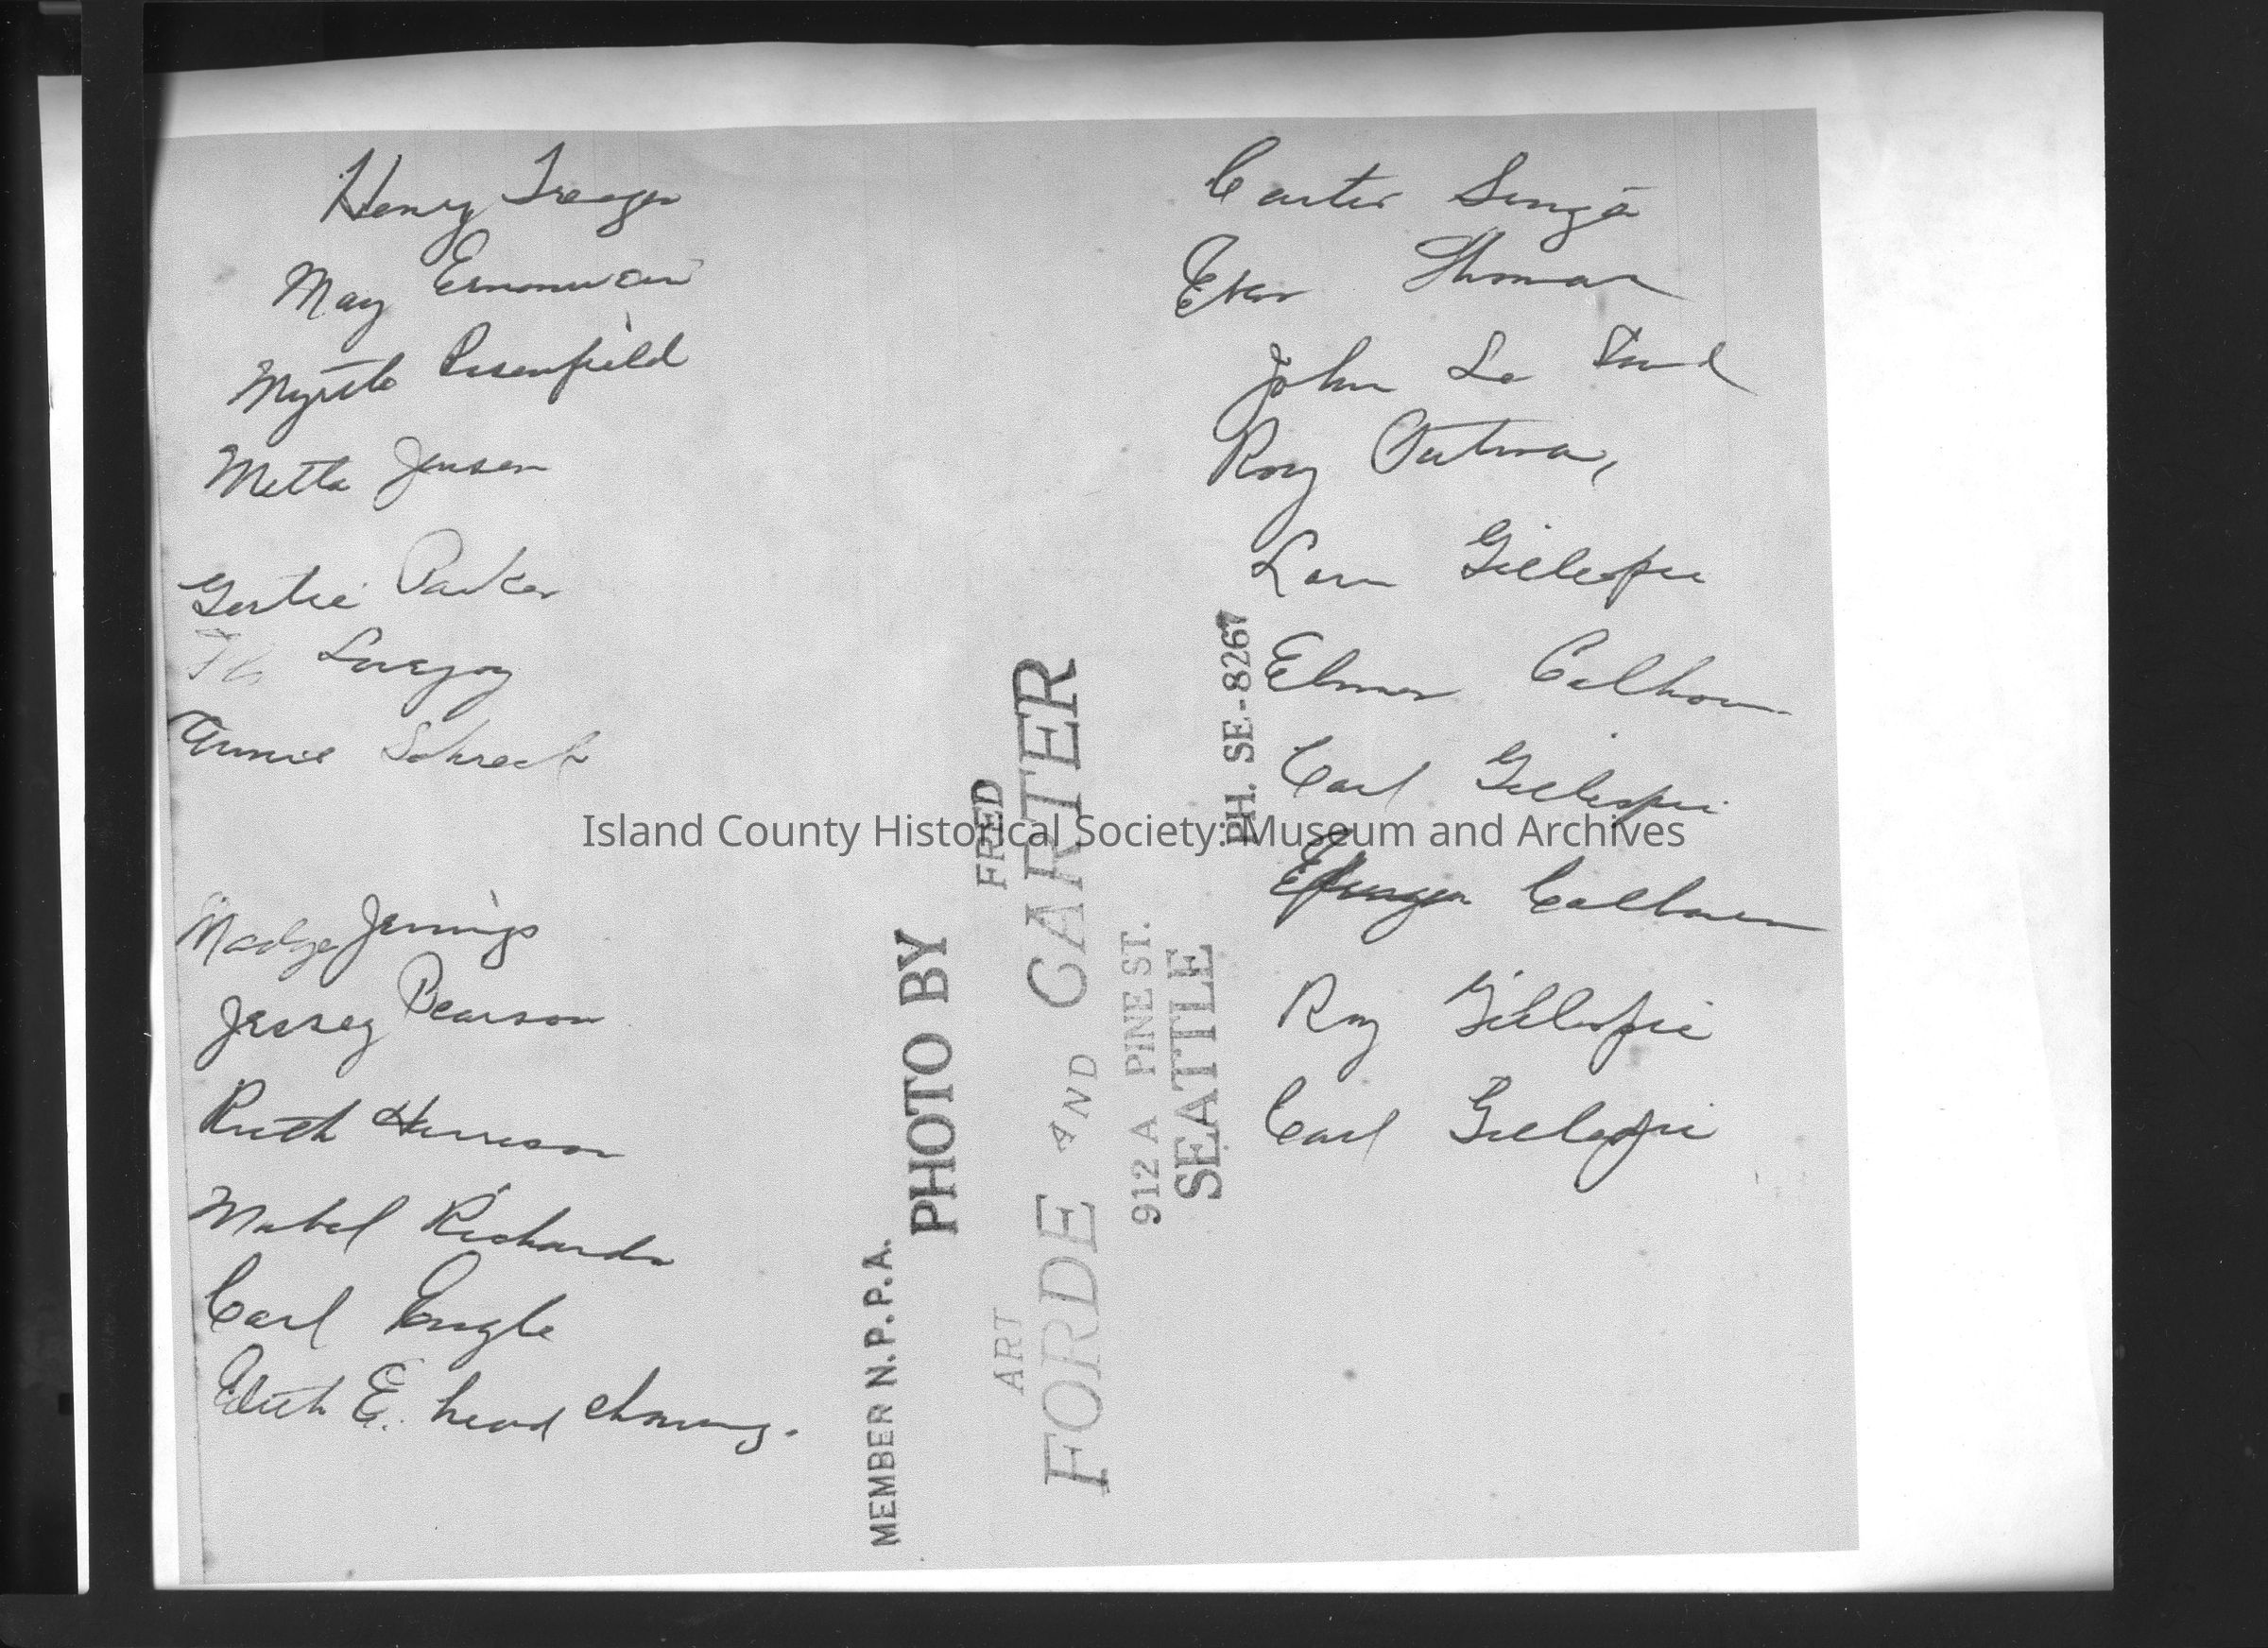 Henry
May
Myrtle Rosenfield
Metta Jensen
Gertie Parker
Lovejoy
Annie Schreck
Madge Jennings
Jessey Pearson
Ruth Harrison
Mabel Richards
Carl Engle
Edith E. head
MEMBER N.P.P.A.
PHOTO BY
ART FORDE AND FRED CARTER
912 A PINE ST.
SEATTLE
PH. SE-8267
Carter
Thomas
John Le
Roy
Lorn Gillespie
Elmer Calhoun
Carl Gillespie
Calhoun
Roy Gillespie
Carl Gillespie
Island County Historical Society: Museum and Archives